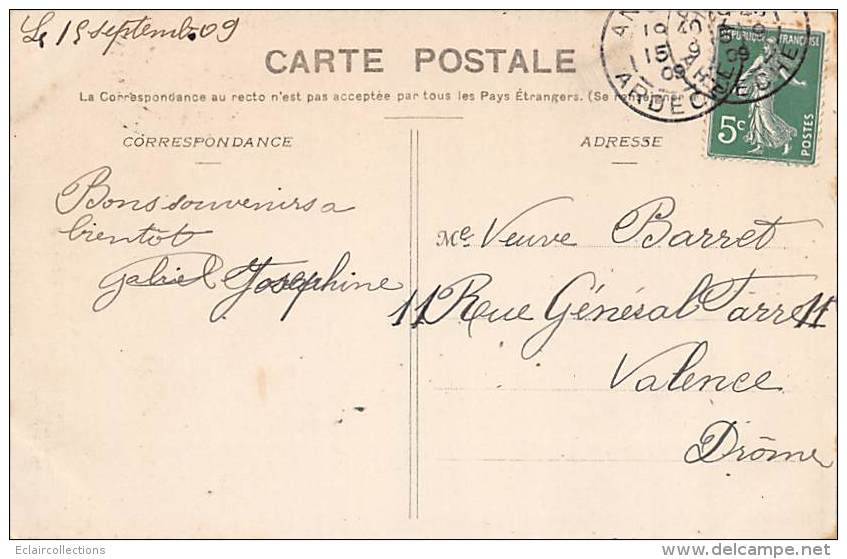 Le 15 septemb. 09
CARTE POSTALE
La Correspondance au recto n'est pas acceptée par tous les Pays Étrangers. (Se renseigner
CORRESPONDANCE
ADRESSE
RÉPUBLIQUE FRANÇAISE
5c
POSTES
ARDECHE
15
09
Bons souvenirs a
bientot
Gabriel Josephine
Me Veuve Barret
11 Rue Général Farre 11
Valence
Drôme
Eclaircollections
http://www.delcampe.net